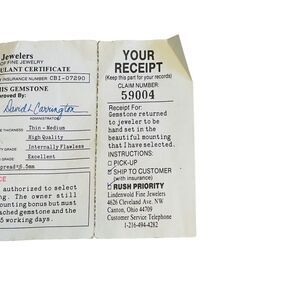 Jewelers
OF FINE JEWELRY
ULANT CERTIFICATE
INSURANCE NUMBER CBI-07290
HIS GEMSTONE
proved By:
David L Carrington
ADMINISTRATOR
E THICKNESS Thin - Medium
High Quality
TY GRADE Internally Flawless
GRADE Excellent
pread≈8.5mm
CE
authorized to select
ng. The owner still
ounting bonus but must
ched gemstone and the
5 working days.
YOUR
RECEIPT
(Keep this part for your records)
CLAIM NUMBER:
59004
Receipt For:
Gemstone returned
to jeweler to be
hand set in the
beautiful mounting
that I have selected.
INSTRUCTIONS:
PICK-UP
SHIP TO CUSTOMER
(with insurance)
RUSH PRIORITY
Lindenwold Fine Jewelers
4626 Cleveland Ave. NW
Canton, Ohio 44709
Customer Service Telephone
1-216-494-4282